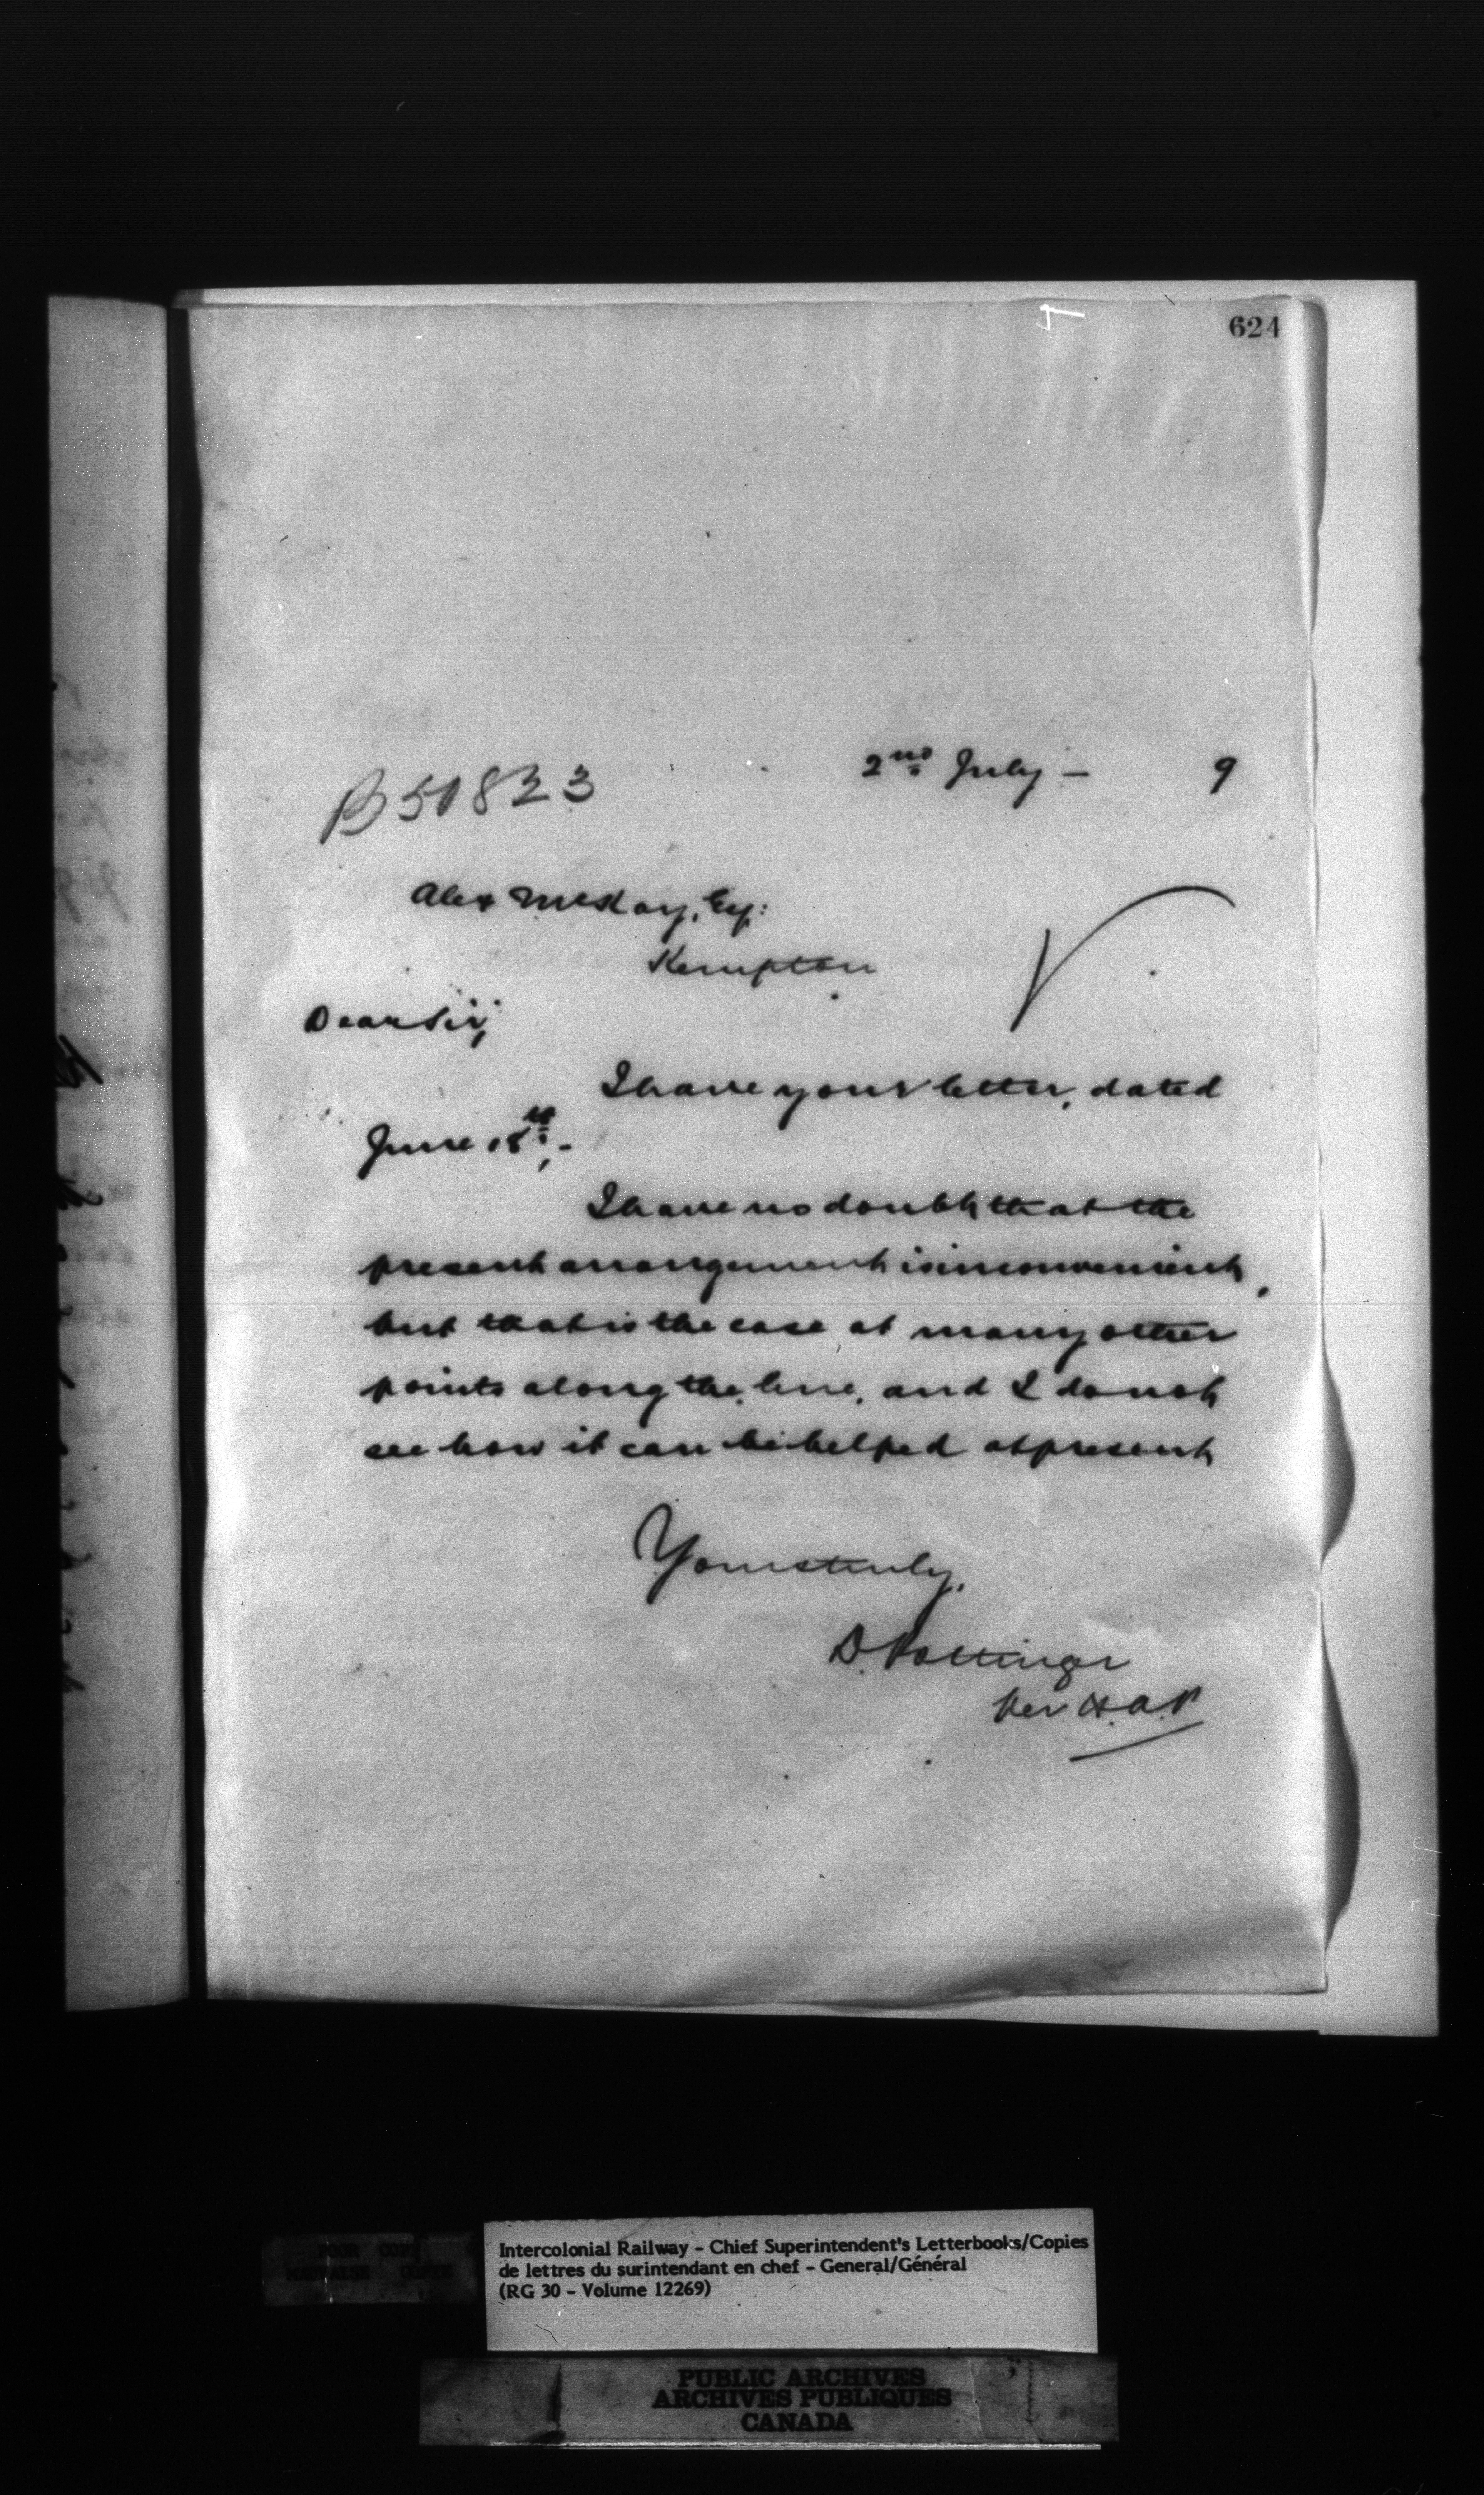 624
2nd July - 9
B 50823
Alex McKay, Esq:
Kempton
Dear Sir,
I have your letter, dated
June 18th,-
I have no doubt that the
present arrangement is inconvenient,
but that is the case at many other
points along the line, and I do not
see how it can be helped at present
Yours truly,
D. Pottinger
Per H.A.P
Intercolonial Railway - Chief Superintendent's Letterbooks/Copies
de lettres du surintendant en chef - General/Général
(RG 30 - Volume 12269)
PUBLIC ARCHIVES
ARCHIVES PUBLIQUES
CANADA